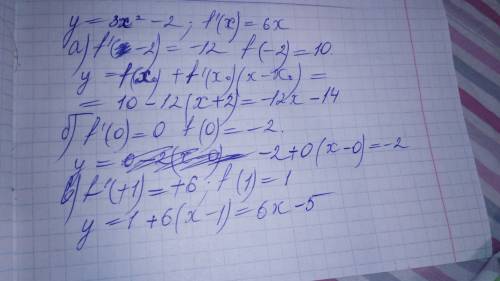 y = 3x² - 2 ; f'(x) = 6x
а) f'(-2) = -12 f(-2) = 10.
y = f(x₀) + f'(x₀)(x - x₀) =
= 10 - 12(x+2) = -12x - 14
б) f'(0) = 0 f(0) = -2.
y = -2 + 0(x - 0) = -2
в) f'(+1) = +6 ; f(1) = 1
y = 1 + 6(x - 1) = 6x - 5